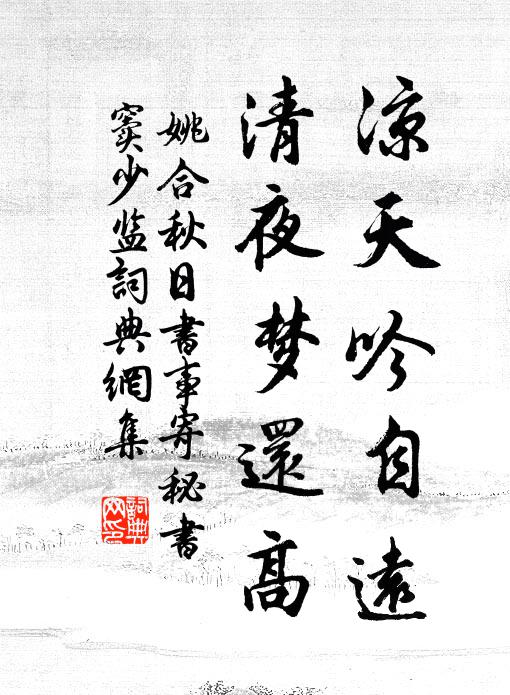 凉天吟自遠
清夜梦還高
姚合秋日書事寄秘書
窦少监詞典網集
詞典
网印